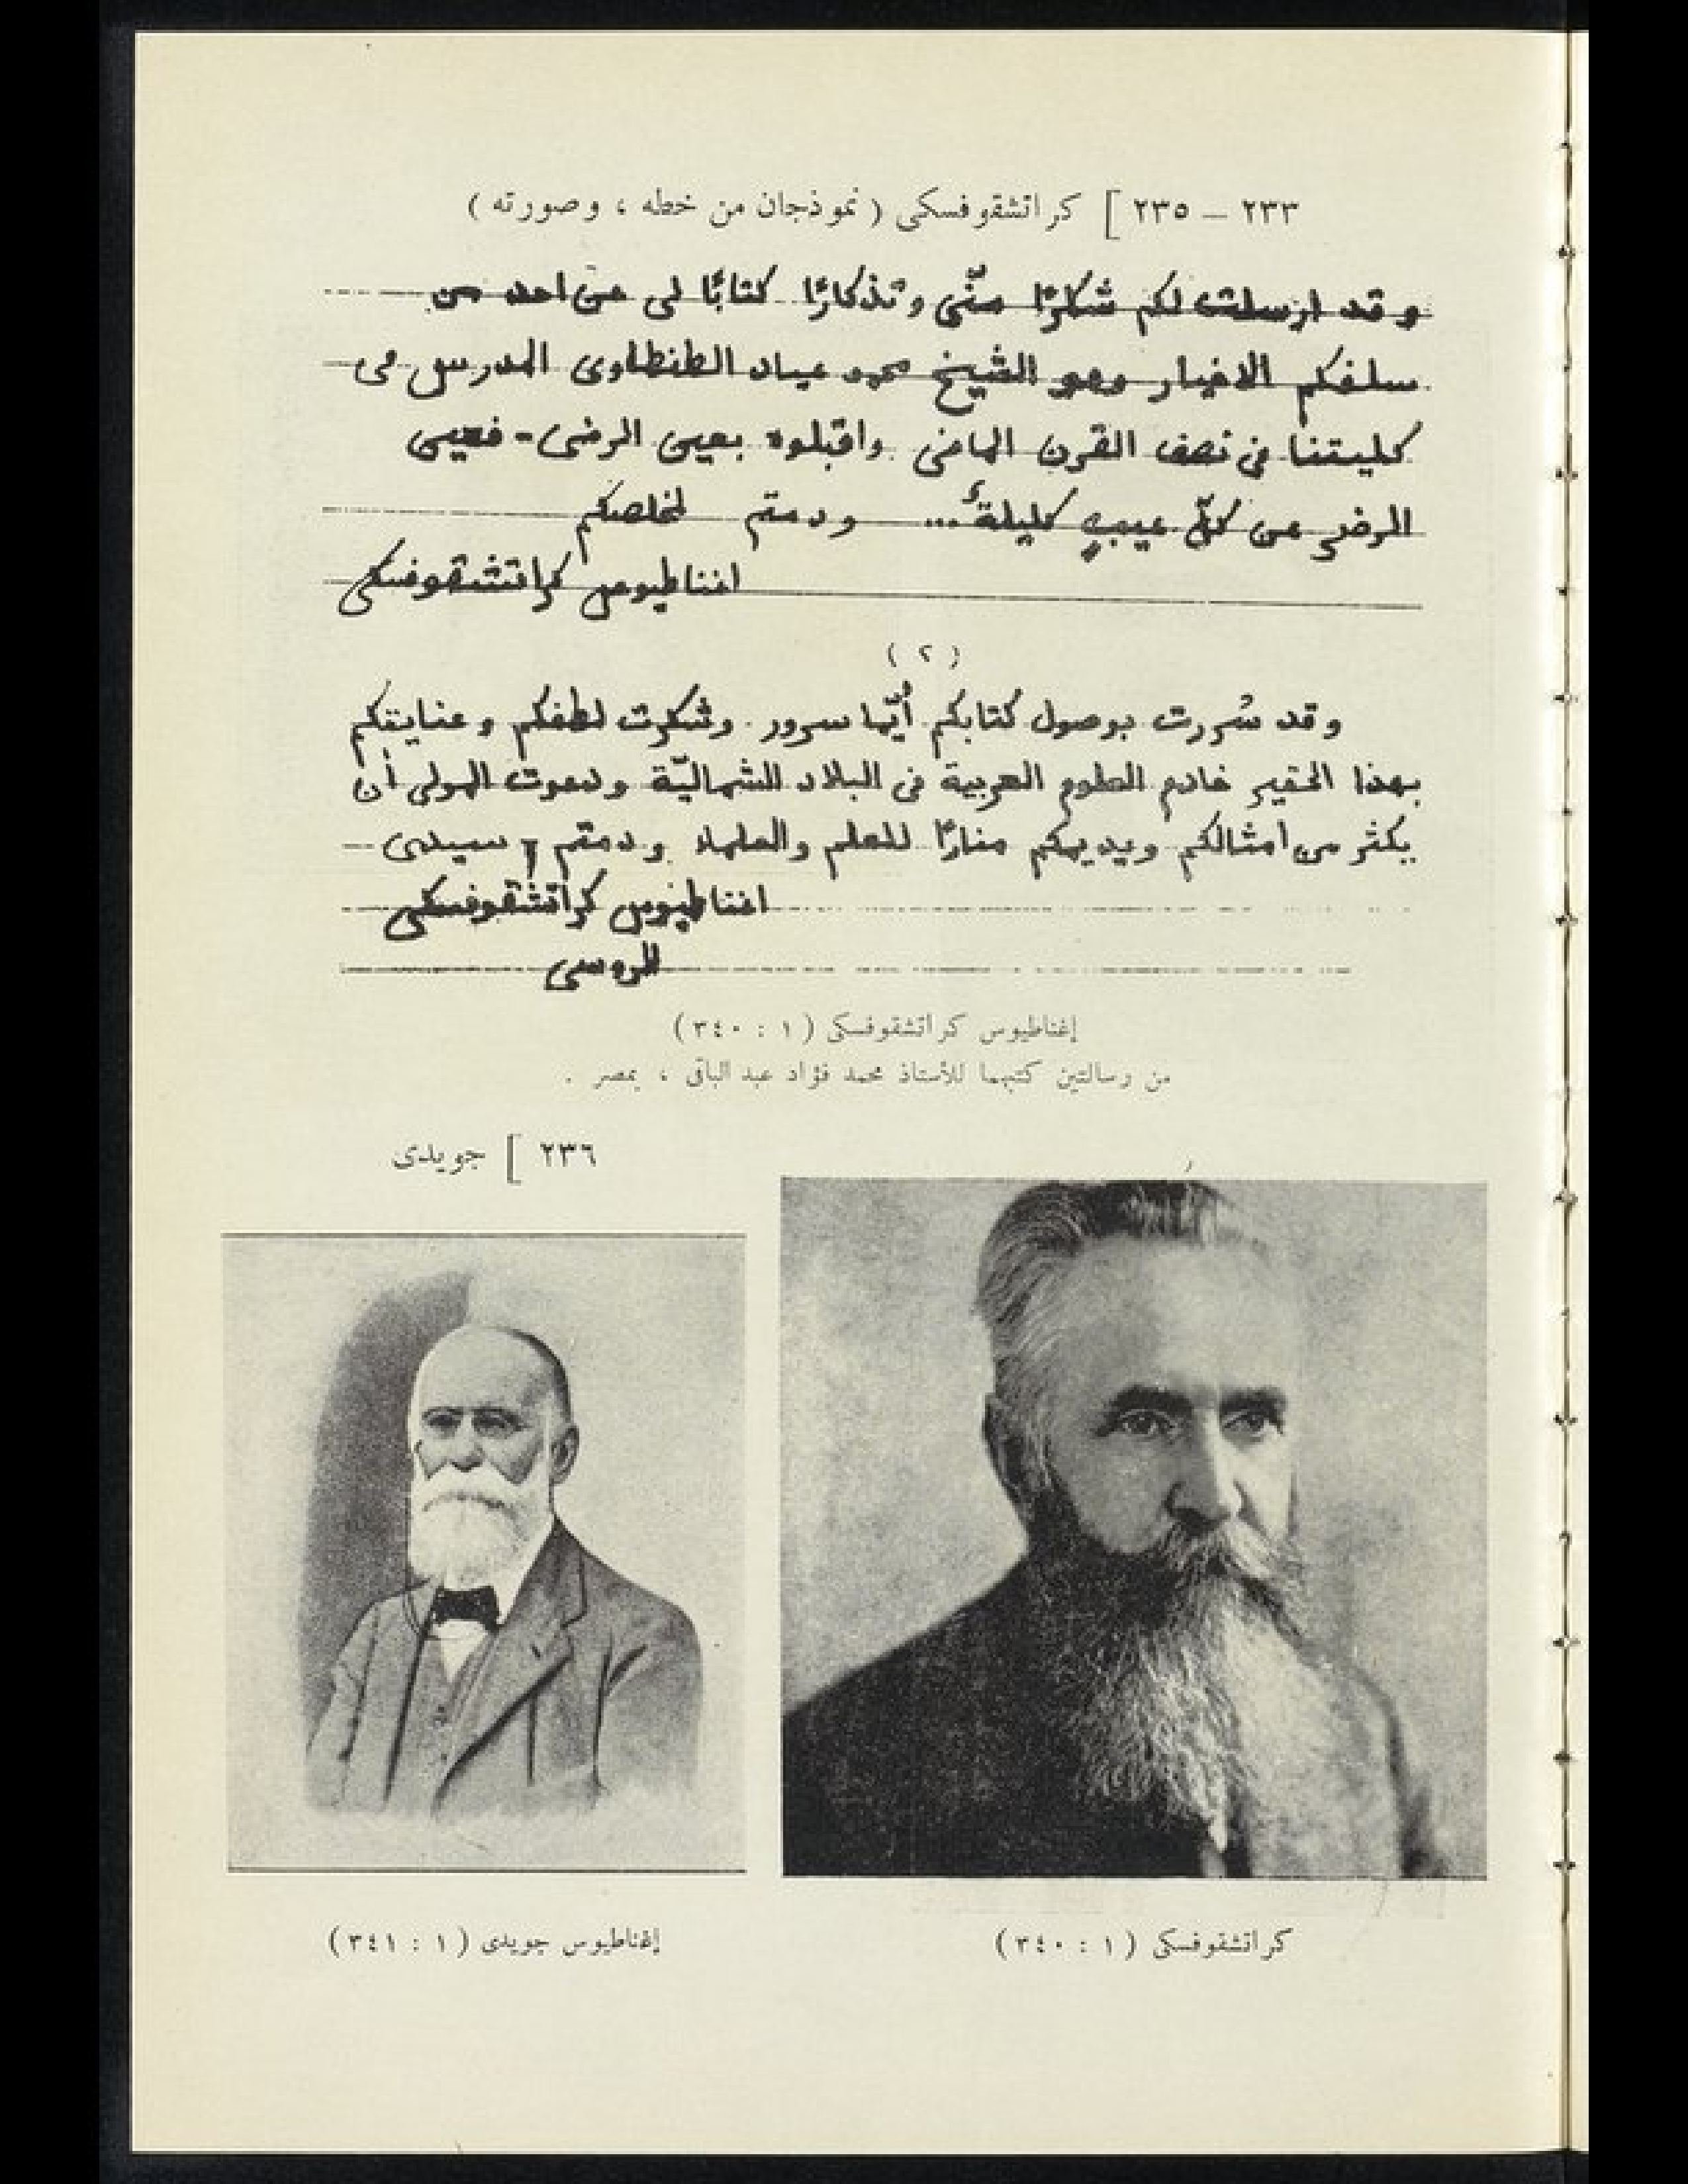 ٢٣٣ – ٢٣٥ ] كراتشقوفسكى ( نموذجان من خطه ، وصورته )
وقد ارسلت لكم شكرًا منّى وتذكارًا كتابًا لى عن احد من
سلفكم الاخيار وهو الشيخ محمد عياد الطنطاوى المدرس فى
كليتنا فى نصف القرن الماضى واقبلوه بعين الرضى - فعين
الرضى عن كلّ عيبٍ كليلةٌ ... ودمتم لمخلصكم
اغناطيوس كراتشقوفسكى
( ٢ )
وقد سُررت بوصول كتابكم أيّما سرور . وشكرت لطفكم وعنايتكم
بهذا الحقير خادم العلوم العربية فى البلاد الشماليّة ودعوت المولى أن
يكثر من امثالكم ويديمكم منارًا للعلم والعلماء ودمتم سيدى
اغناطيوس كراتشقوفسكى
الروسى
إغناطيوس كراتشقوفسكى ( ١ : ٣٤٠ )
من رسالتين كتبهما للأستاذ محمد فؤاد عبد الباقى ، بمصر .
٢٣٦ ] جويدى
كراتشقوفسكى ( ١ : ٣٤٠ )
إغناطيوس جويدى ( ١ : ٣٤١ )